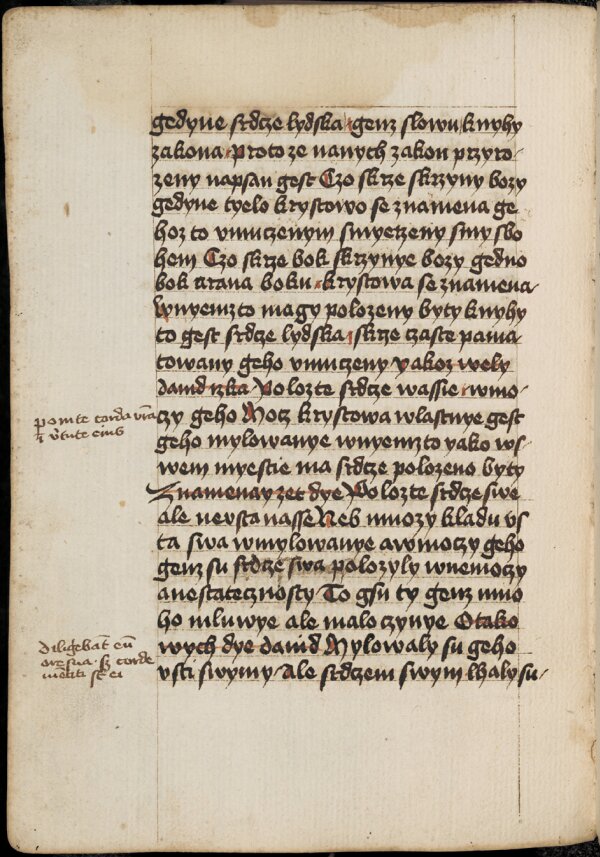 gedyne srdcze lydska · genz slowu knyhy
zakona · proto ze nanych zakon przyro-
zeny napsan gest Czo skrze skrzyny bozy
gedyne tyelo krystowo se znamena ge
hoz to vmuczenym smyerzeny smy s bo
hem Czo skrze bok skrzynye bozy gedno
bok a rana boku · krystowa se znamena ·
wnyemz to magy polozeny byty knyhy
to gest srdcze lydska · skrze czaste pama
towany geho vmuczeny yakoz wely
david rzka Polozte srdcze wassie · wmo-
czy geho Mocz krystowa wlastnye gest
geho mylowanye wnyemz to yako ws-
wem myestie ma srdcze polozeno byty
Znamenay zet dye Polozte srdcze swe
ale ne vsta nasse Neb mnozy kladu vs
ta swa w mylowanye a w moczy geho
genz su srdcze swa polozyly w nemoczy
a nestatecznosty To gsu ty genz mno
ho mluwye ale malo czynye O tako
wych dye david Mylowaly su geho
vsti swymy · Ale srdczem swym lhaly su ·
ponite corda vra
i vtute eius
diligebat eu
ore suo · sz corde
metiti st ei